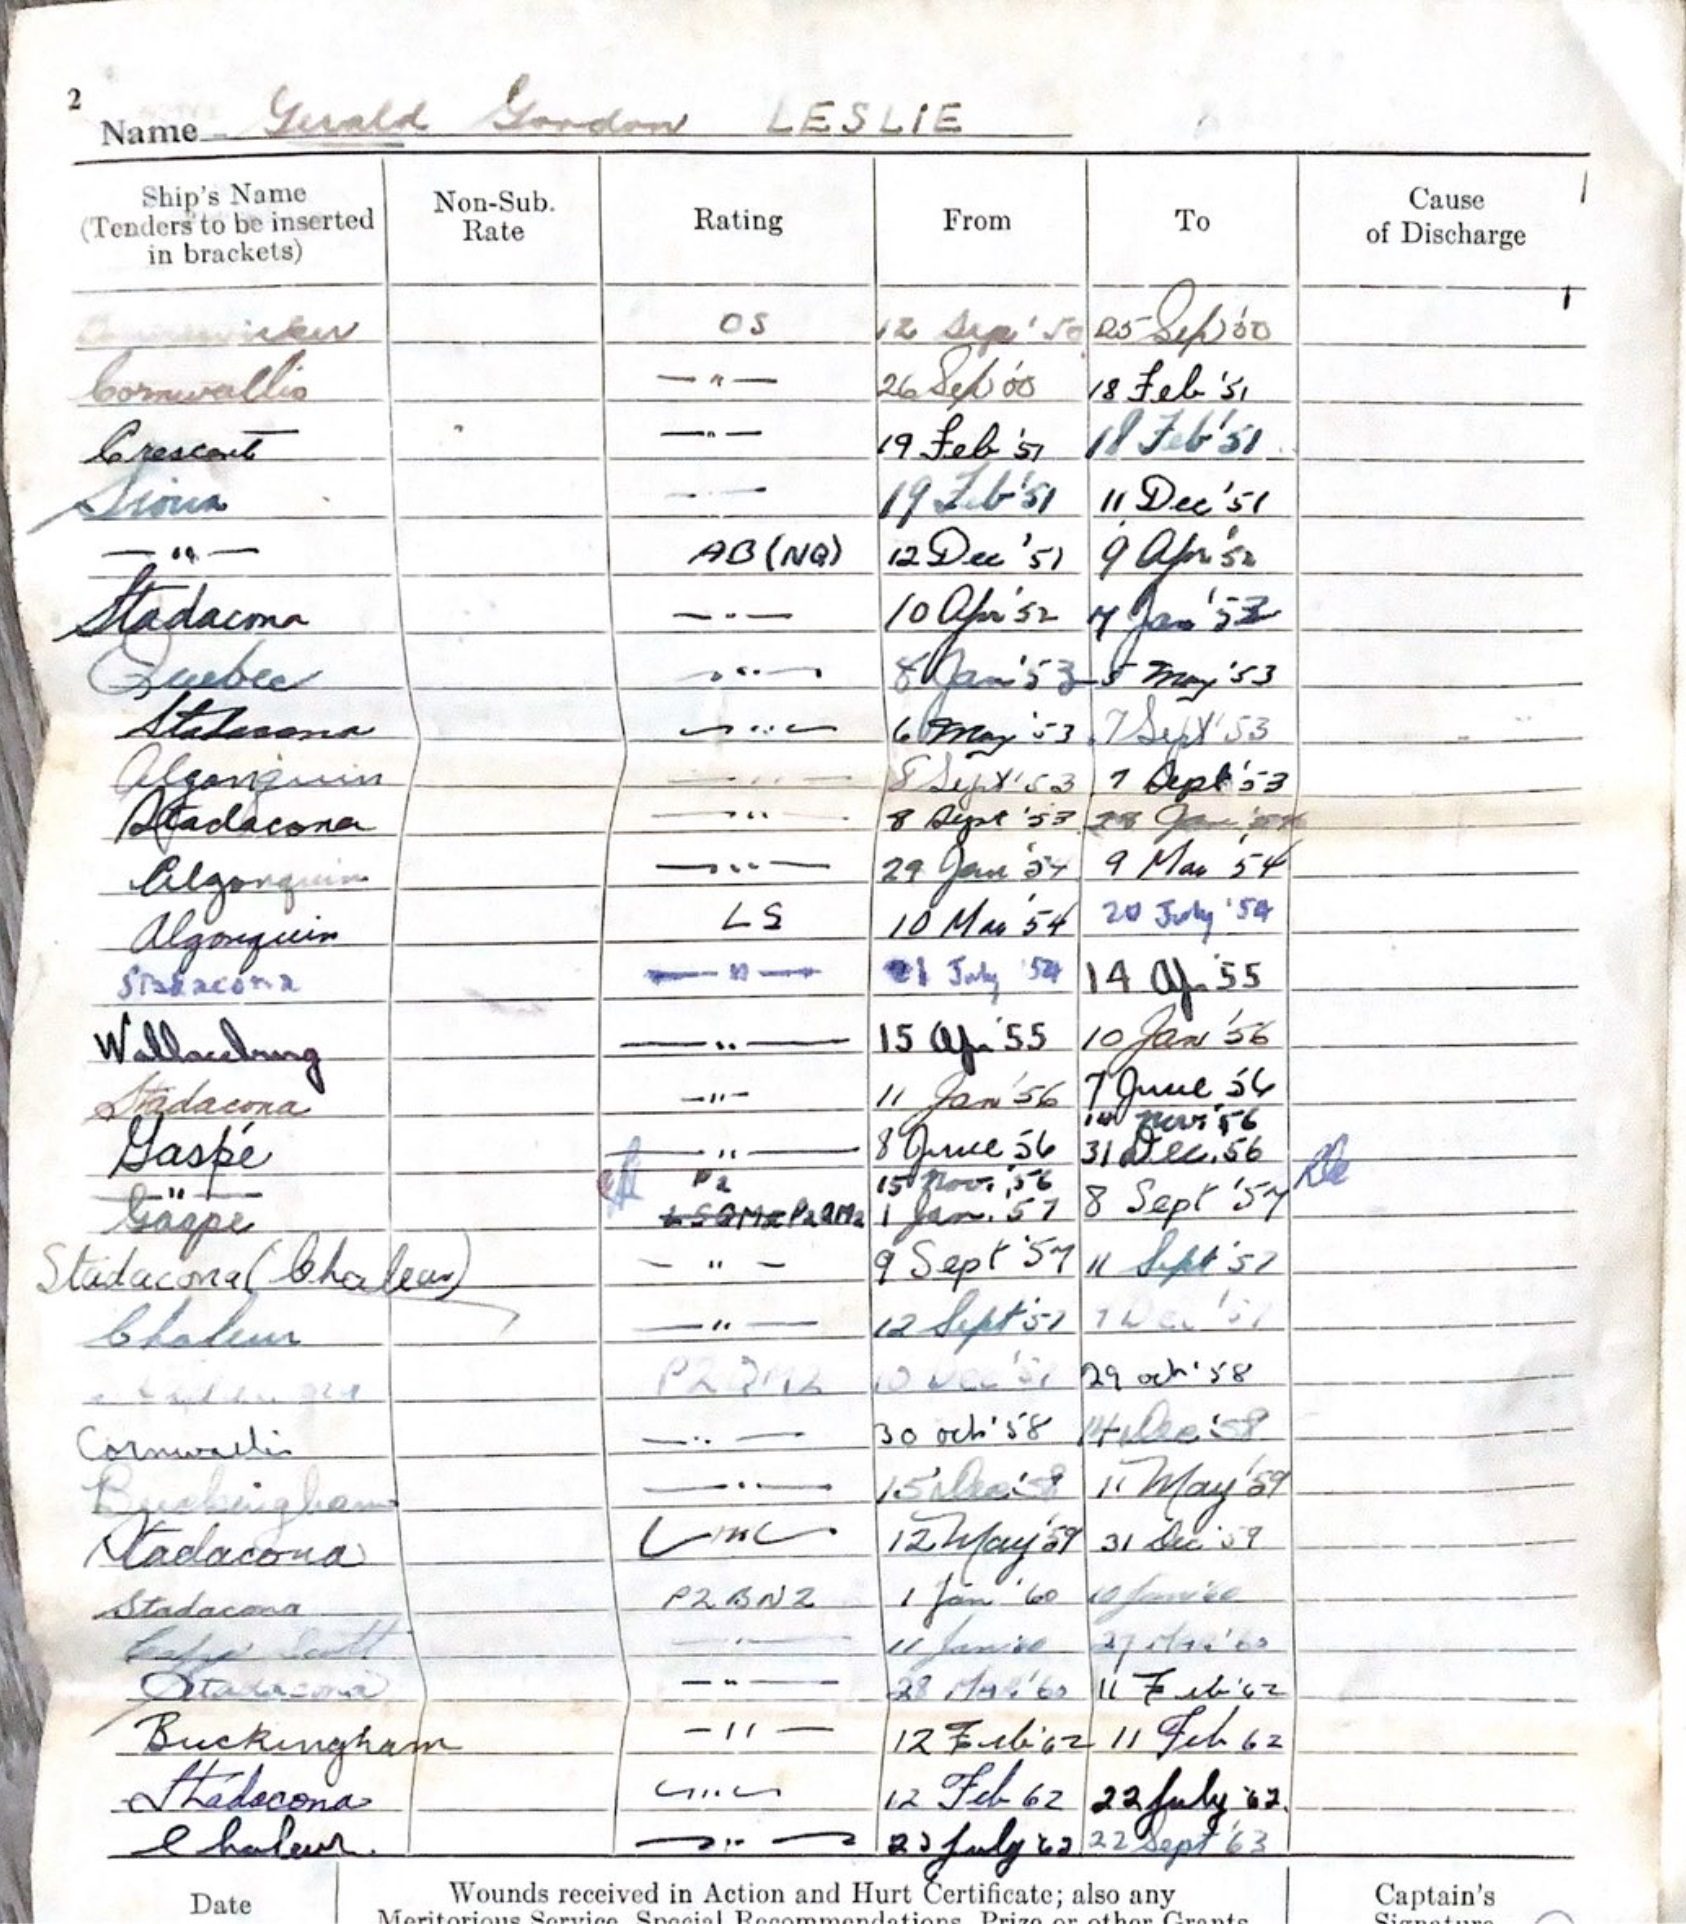 2
Name Gerald Gordon LESLIE
Ship's Name (Tenders to be inserted in brackets) Non-Sub. Rate Rating From To Cause of Discharge
OS 12 Sep' 50 25 Sep '50
Cornwallis —"— 26 Sep '50 18 Feb '51
Crescent —"— 19 Feb '51 18 Feb '51
Sioux —"— 19 Feb '51 11 Dec '51
—"— AB (NQ) 12 Dec '51 9 Apr '52
Stadacona —"— 10 Apr '52 7 Jan '53
Quebec —"— 8 Jan '53 5 May '53
Stadacona —"— 6 May '53 7 Sept '53
Algonquin —"— 8 Sept '53 7 Sept '53
Stadacona —"— 8 Sept '53 28 Jan '54
Algonquin —"— 29 Jan '54 9 Mar '54
Algonquin LS 10 Mar '54 20 July '54
Stadacona —"— 21 July '54 14 Ap. 55
Wallaceburg —"— 15 Ap. 55 10 Jan '56
Stadacona —"— 11 Jan '56 7 June '56
14 Nov. '56
Gaspé —"— 8 June 56 31 Dec. 56
—"— P2 15 Nov. '56
Gaspé LSQM2 P2QM2 1 Jan. 57 8 Sept '57
Stadacona (Chaleur) —"— 9 Sept '57 11 Sept '57
Chaleur —"— 12 Sept '57 Dec '57
P2QM2 10 Dec '57 29 Oct '58
Cornwallis —"— 30 Oct '58 14 Dec '58
Buckingham —"— 15 Dec '58 11 May '59
Stadacona —"— 12 May '59 31 Dec '59
Stadacona P2BN2 1 Jan '60 10 Jan '60
Cape Scott —"— 11 Jan '60 27 Mar '60
Stadacona —"— 28 Mar '60 11 Feb '62
Buckingham —"— 12 Feb '62 11 Feb 62
Stadacona —"— 12 Feb 62 22 July '62.
Chaleur. —"— 23 July '62 22 Sept '63
Date Wounds received in Action and Hurt Certificate; also any Captain's
Meritorious Service, Special Recommendations, Prize or other Grants Signature